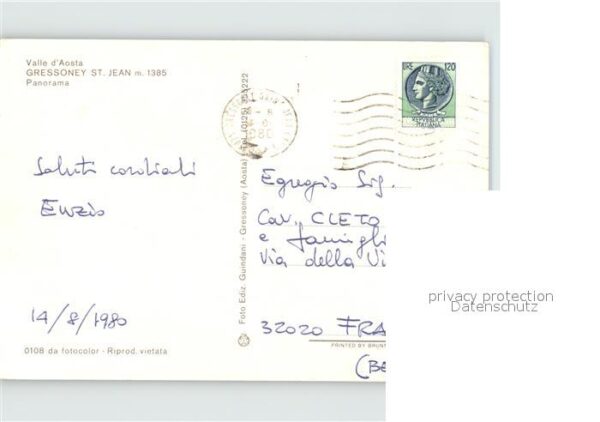 Valle d'Aosta
GRESSONEY ST. JEAN m. 1385
Panorama
LIRE 120
REPUBBLICA
ITALIANA
Saluti cordiali
Enzio
14/8/1980
0108 da fotocolor - Riprod. vietata
Foto Ediz. Guindani - Gressoney (Aosta) - Tel. (0125) 355222
Egregio Sig.
Cav. CLETO
e famigli
via della Vi
32020 FRA
PRINTED BY BRUNT
(BE
privacy protection
Datenschutz